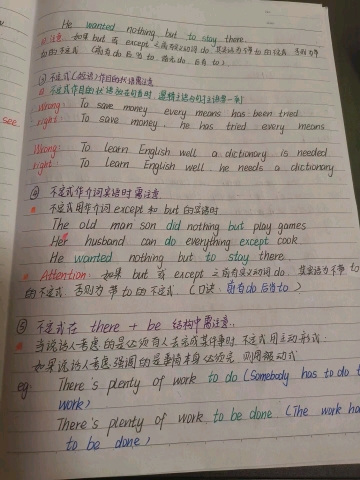 He wanted nothing but to stay there.
注意 如果but 或 except 之前有实义动词do，其宾语为不带to的不定式，否则为带
to的不定式 (前有do后去to，前无do后有to)
③ 不定式(短语)作目的状语需注意
不定式作目的状语放在句首时 逻辑主语与句子主语要一致
Wrong: To save money every means has been tried
right: To save money, he has tried every means
Wrong: To learn English well a dictionary is needed
right: To learn English well he needs a dictionary
④ 不定式作介词宾语时需注意
不定式用作介词except 和 but 的宾语时
The old man son did nothing but play games
Her husband can do everything except cook
He wanted nothing but to stay there.
Attention: 如果 but 或 except 之前有实义动词do，其宾语为不带to
的不定式 否则为带to的不定式 (口诀: 前有do后去to)
⑤ 不定式在 there + be 结构中需注意:
当说话人考虑的是必须有人去完成某件事时 不定式用主动形式:
如果说话人考虑强调的是事情本身必须完 则用被动式
eg: There's plenty of work to do (Somebody has to do t
work)
There's plenty of work to be done (The work ha
to be done)
see